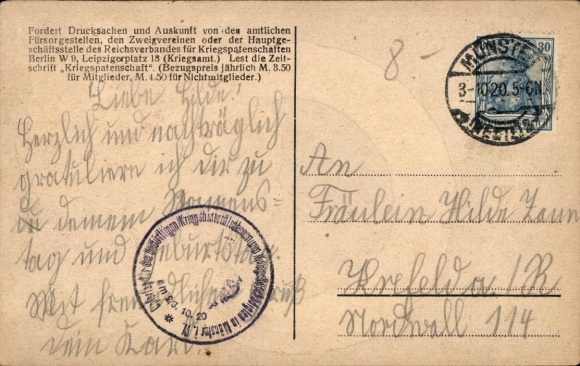 Fordert Drucksachen und Auskunft von den amtlichen
Fürsorgestellen, den Zweigvereinen oder der Hauptge-
schäftsstelle des Reichsverbandes für Kriegspatenschaften
Berlin W 9, Leipzigerplatz 13 (Kriegsamt.) Lest die Zeit-
schrift „Kriegspatenschaft". (Bezugspreis jährlich M. 3.50
für Mitglieder, M. 4.50 für Nichtmitglieder.)
8 -
MÜNSTER
3-10 20. 5-6N.
30
Liebe Hilde!
Herzlich und nachträglich
gratuliere ich dir zu
deinem Namens-
tag und Geburtstag.
Mit freundlichem Gruß
dein Karl
in Münster i. W.
10. 20
An
Fräulein Hilde
Krefeld a/R
Nordwall 114